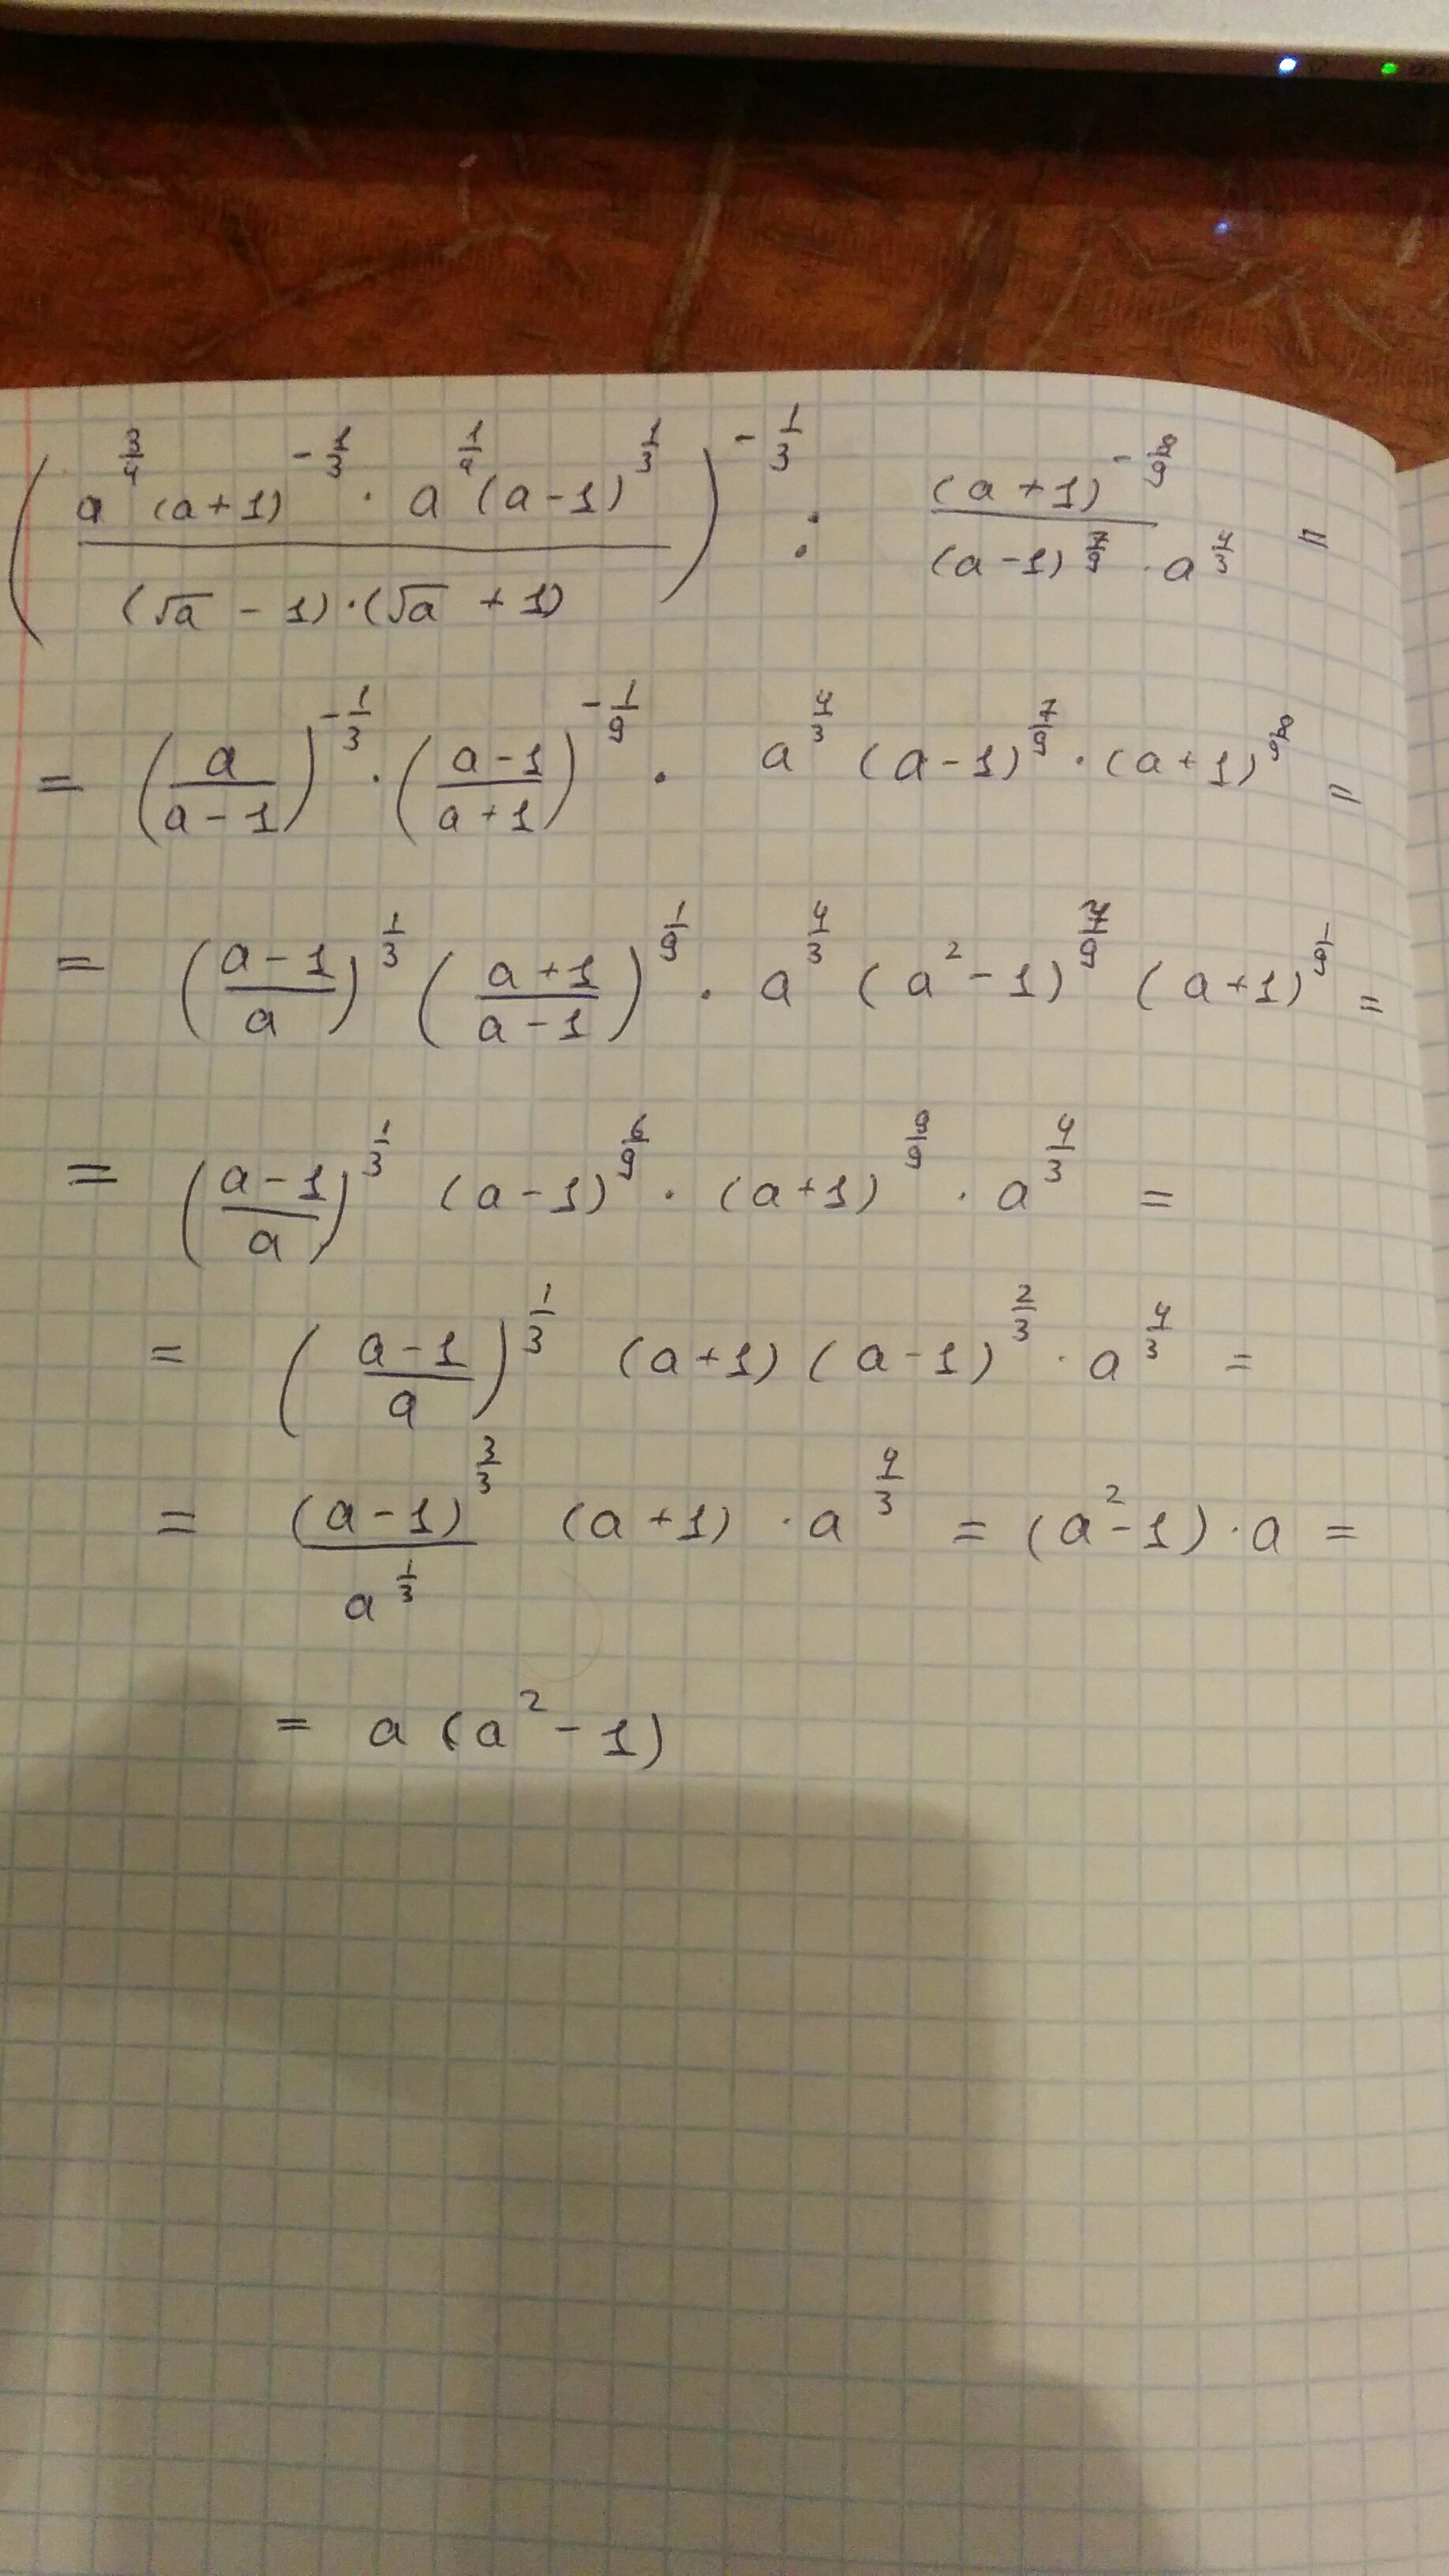 (a^{3/4} (a+1)^{-1/3} · a^{1/4} (a-1)^{1/3} / (√a - 1)·(√a + 1))^{-1/3} : (a+1)^{-8/9} / (a-1)^{7/9} · a^{4/3} =
= (a / a-1)^{-1/3} · (a-1 / a+1)^{-1/9} · a^{4/3} (a-1)^{7/9} · (a+1)^{8/9} =
= (a-1 / a)^{1/3} (a+1 / a-1)^{1/9} · a^{4/3} (a^2-1)^{7/9} (a+1)^{1/9} =
= (a-1 / a)^{1/3} (a-1)^{6/9} · (a+1)^{9/9} · a^{4/3} =
= (a-1 / a)^{1/3} (a+1) (a-1)^{2/3} · a^{4/3} =
= (a-1)^{3/3} / a^{1/3} (a+1) · a^{4/3} = (a^2-1) · a =
= a (a^2-1)